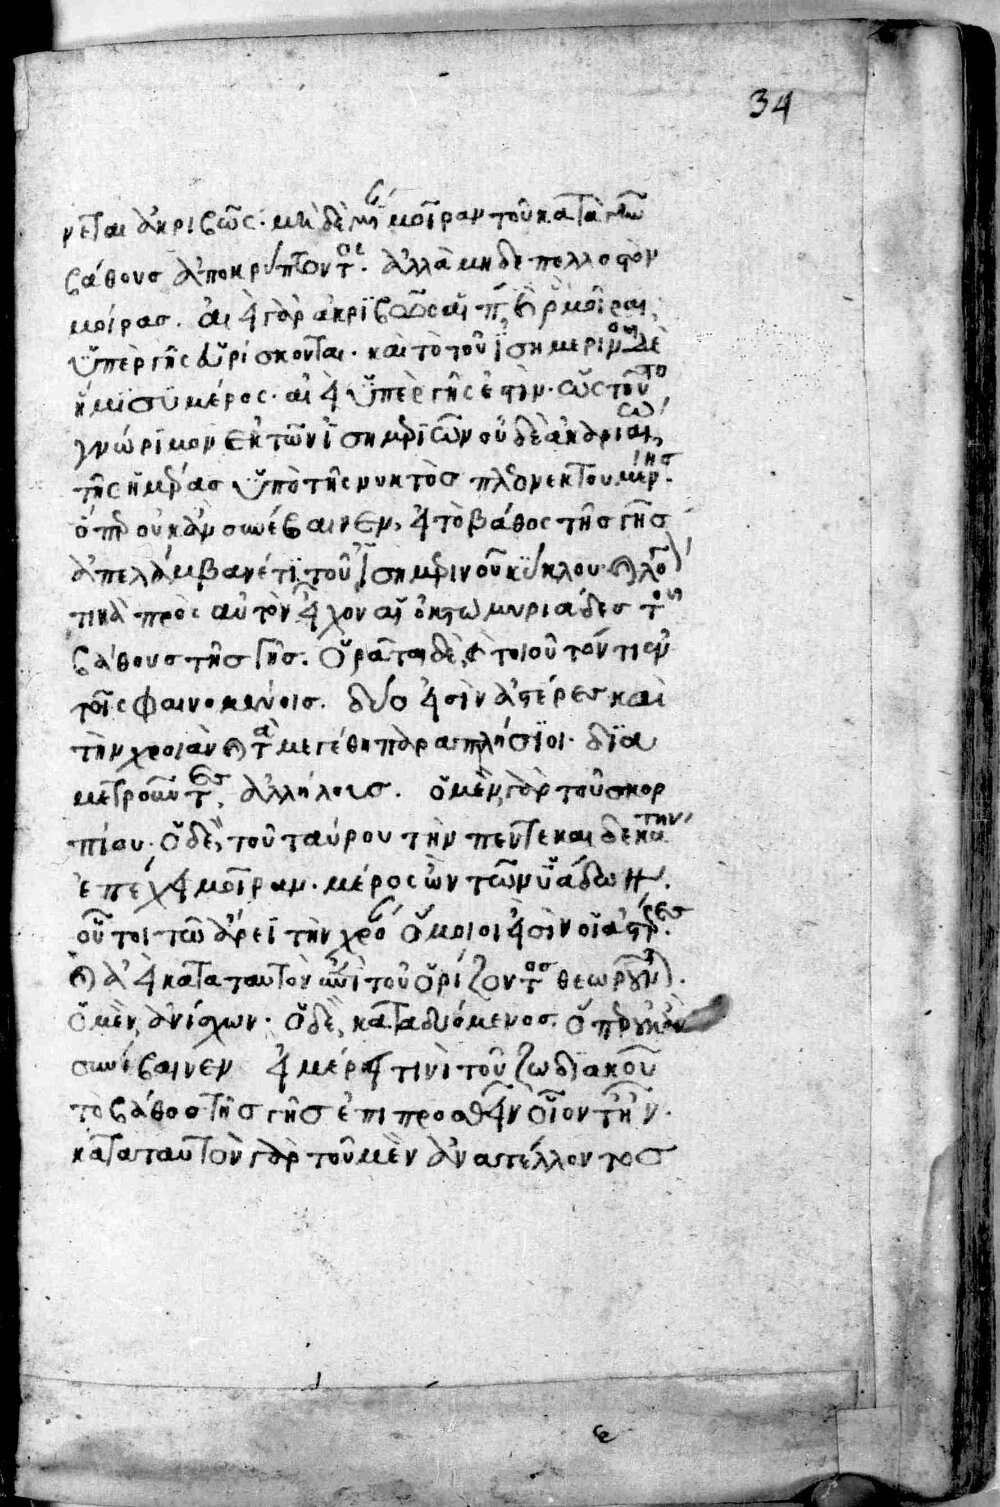 34
νεται ἀκριβῶς· μηδὲ μοῖραν τοῦ κατὰ τῶ
βάθους ἀποκρύπτοντος. ἀλλὰ μηδὲ πολλοστὸν
μοίρας. αἱ γὰρ ἀκριβῶς μοῖραι,
ὑπὲρ γῆς εὑρίσκονται. καὶ τὸ τοῦ ἰσημερινοῦ δὲ
ἥμισυ μέρος. ἀεὶ ὑπὲρ γῆς ἐστὶν. ὡς τοῦτο
γνώριμον ἐκ τῶν ἰσημεριῶν οὐδὲ ἀκαριαίως
τῆς ἡμέρας ὑπὸ τῆς νυκτὸς πλεονεκτουμένης.
ὅπερ οὐκ ἂν συνέβαινεν, εἰ τὸ βάθος τῆς γῆς
ἀπελάμβανέ τι τοῦ ἰσημερινοῦ κύκλου. λόγον
τινὰ πρὸς αὐτὸν ἔχον αἱ ὀκτὼ μυριάδες τοῦ
βάθους τῆς γῆς. ὁρᾶται δὲ τοιοῦτόν τι ἐν
τοῖς φαινομένοις. δύο εἰσὶν ἀστέρες καὶ
τὴν χροιὰν καὶ τὰ μεγέθη παραπλήσιοι. δια
μετροῦντες ἀλλήλοις. ὁ μὲν γὰρ τοῦ σκορ
πίου. ὁ δὲ, τοῦ ταύρου τὴν πεντεκαιδεκάτην
ἐπέχει μοῖραν. μέρος ὢν τῶν ὑάδων.
οὗτοι τῶ ἄρεϊ τὴν χρόαν ὅμοιοι εἰσὶν οἱ ἀστέρες.
καὶ ἀεὶ κατὰ ταυτὸν ἐπὶ τοῦ ὁρίζοντος θεωροῦνται.
ὁ μὲν, ἀνίσχων. ὁ δὲ, καταδυόμενος. ὅπερ οὐκ ἂν
συνέβαινεν εἰ μέρει τινὶ τοῦ ζωδιακοῦ
τὸ βάθος τῆς γῆς ἐπιπροσθεῖν οἷον τ' ἦν.
κατὰ ταυτὸν γὰρ τοῦ μὲν ἀνατέλλοντος